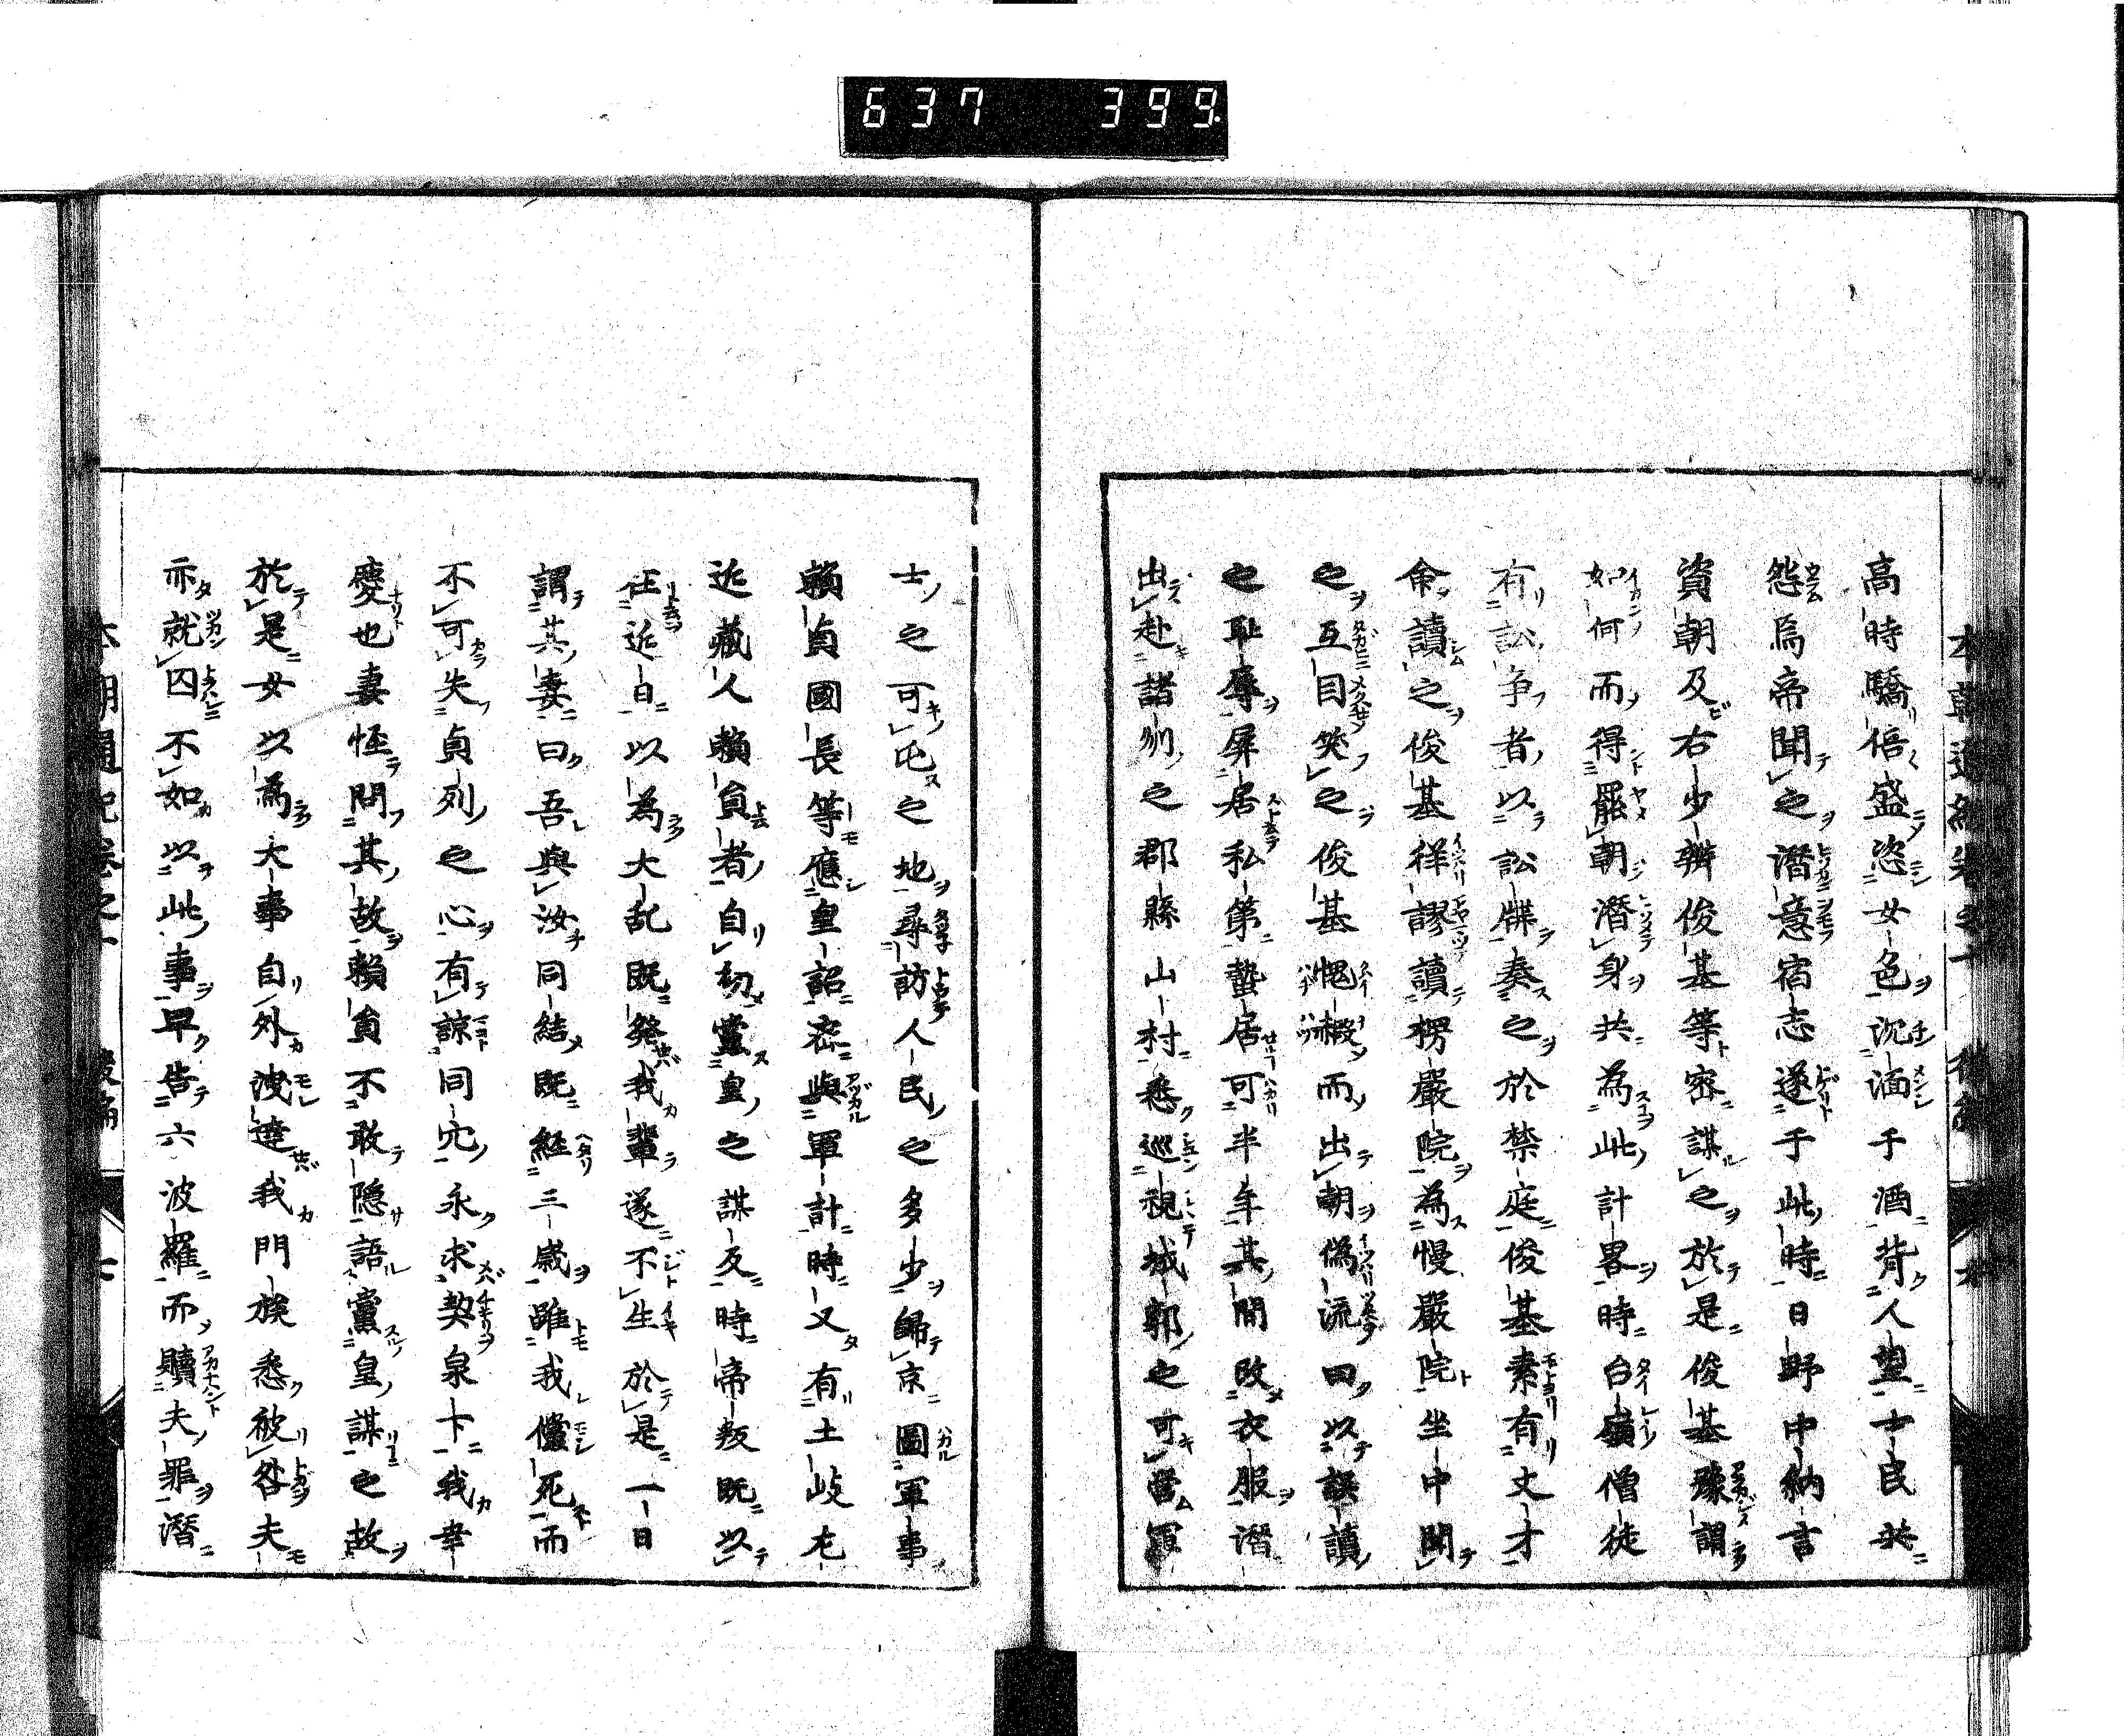 637 399
高時驕倍盛恣女色沉湎于酒背人望士民共
怨焉帝聞之潛意宿志遂于此時日野中納言
資朝及右少辨俊基等密謀之於是俊基豫謂
如何而得罷朝潛身共為此計畧時台嶺僧徒
有訟争者以訟牒奏之於禁庭俊基素有文才
命讀之俊基徉謬讀楞嚴院為慢嚴院坐中聞
之互目笑之俊基愧赧而出朝偽流曰以誤讀
之耻辱屏居私第蟄居可半年其間改衣服潛
出赴諸州之郡縣山村悉巡視城郭之可營軍
士之可屯之地尋訪人民之多少歸京圖軍事
賴貞國長等應皇詔密與軍計時又有土岐左
近藏人賴員者自初黨皇之謀反時帝叛既以
在近日以為大乱既發我輩遂不生於是一日
謂其妻曰吾與汝同結既經三歲雖我儻死而
不可失貞列之心有諒同穴永求契泉下我幸
變也妻恠問其故賴員不敢隱語黨皇謀之故
於是女以為大事自外洩達我門族悉被咎夫
亦就囚不如以此事早告六波羅而贖夫罪潛